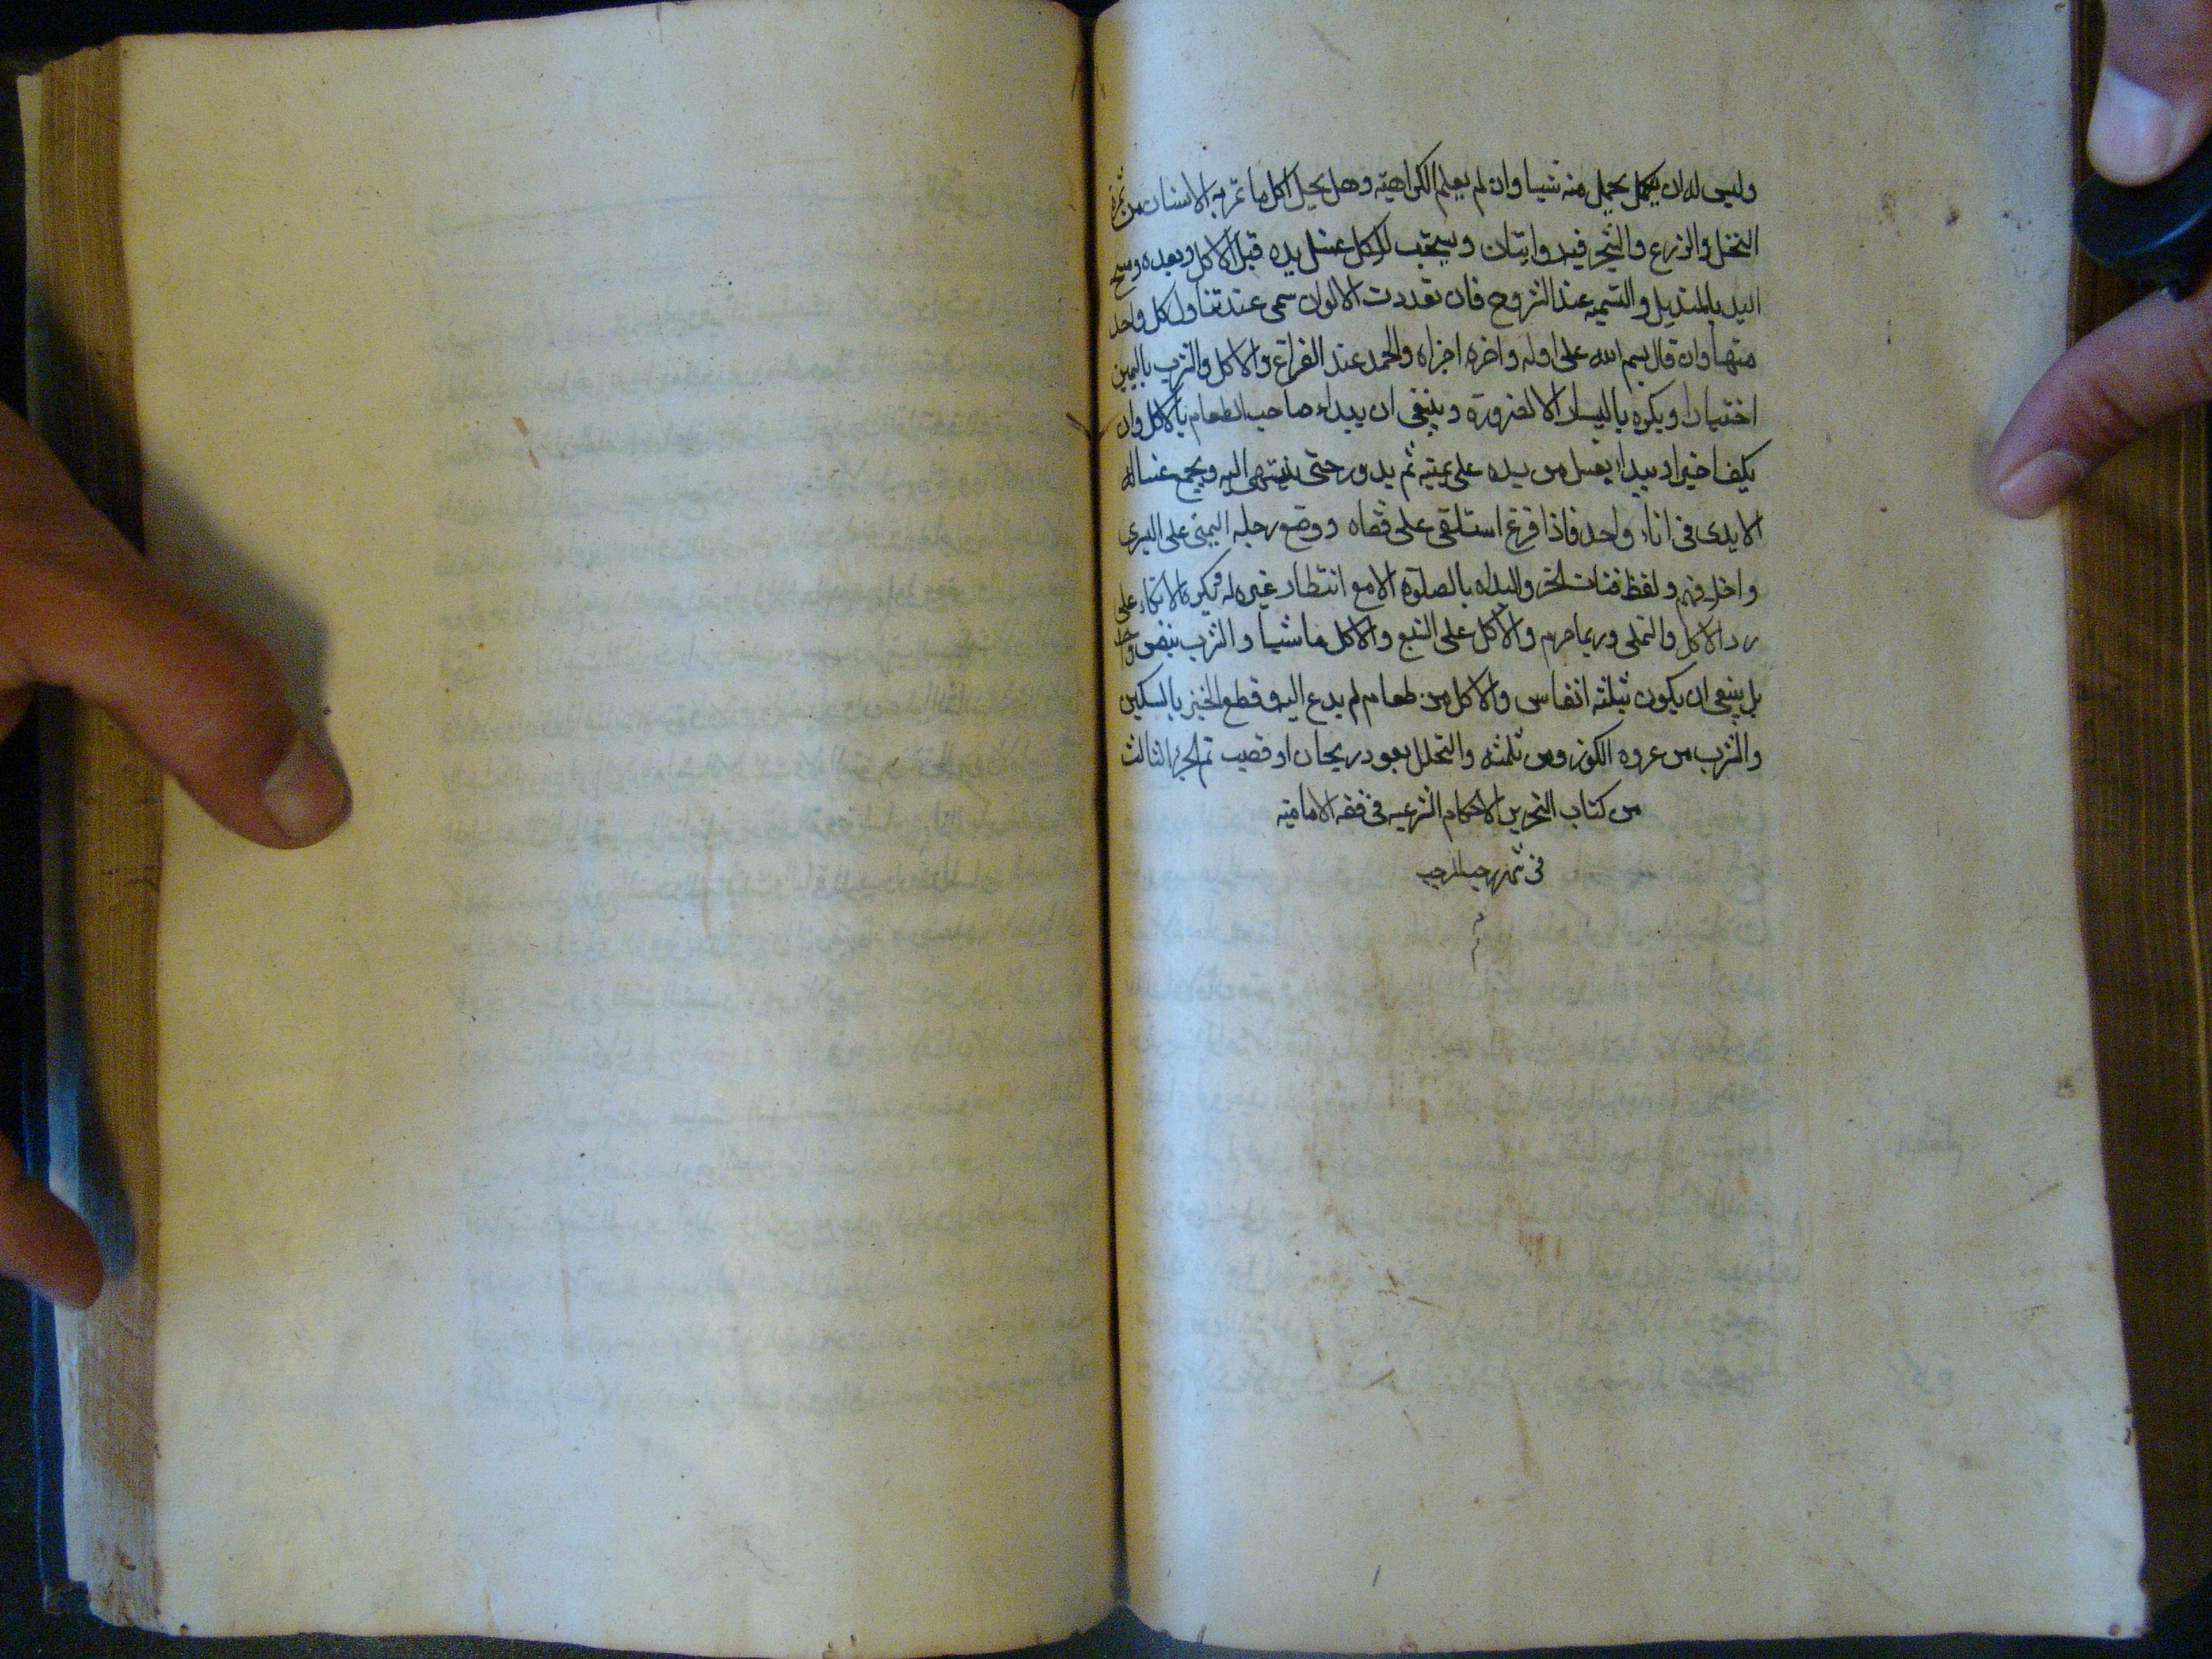 وليس له ان يحمل منه شيا وان لم يعلم الكراهيته وهل يحل اكل ما تمر به الانسان من ثمرة
النخل والزرع والشجر فيه روايتان ويستحب للاكل غسل يده قبل الاكل وبعده ومسح
اليد بالمنديل والتسميه عند الشروع فان تعددت الالوان سمى عند تناول كل واحد
منها وان قال بسم الله على اوله واخره اجزاه والحمد عند الفراغ والاكل والشرب باليمين
اختيارا ويكره باليسار الا لضرورة وينبغى ان يبداء صاحب الطعام بالاكل وان
يكف اخيرا ويبداء بغسل من بيده على يمينه ثم يدور حتى ينتهى اليه ويجمع غساله
الايدى فى اناء واحد فاذا فرغ استلقى على قفاه ووضع رجله اليمنى على اليسرى
الخبز والبداه بالصلوة الا مع انتظار غيره له ويكره الاتكاء على
الاكل والتملى وربما حرم والاكل على الشبع والاكل ماشيا والشرب بنفس واحد
بل ينبغى ان يكون بثلثه انفاس والاكل من طعام لم يدع اليه وقطع الخبز بالسكين
والشرب من عروه الكوز ومن ثلمته والتخلل بعود ريحان او قصيب تم الجزء الثالث
من كتاب التحرير الاحكام الشرعيه فى فقه الاماميه
فى شهر رجب المرجب